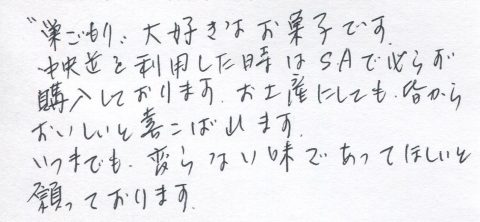 〃巣ごもり〃大好きなお菓子です。
中央道を利用した時はSAで必らず
購入しております。お土産にしても、皆から
おいしいと喜こばれます。
いつまでも、変らない味であってほしいと
願っております。